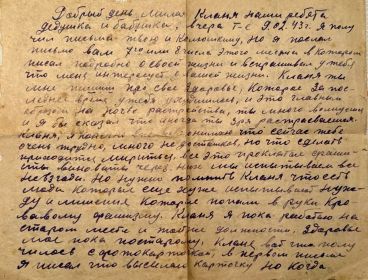 Добрый день милая Кланя наши ребята
дедушка и бабушка. вчера т-е 9.02.43г. я полу
чил письмо твою и Колюшкину. Но я послал
письмо вам 7 или 8 числа этого месяца в котором
писал подробно о своей и спрашивал у тебя
что меня интересует о вашей жизни. Кланя ты
мне пишеш про свое здоровье, которое за пос-
леднее время у тебя и это главным
на почве ты много
и я бы сказал что иногда ты зря расстраиваешся.
Кланя, я понимаю что сейчас тебе
очень трудно, много не достатков, но что сделать
приходится мириться все это проклятые фашис-
ты виноваты через них мы испытываем все
невзгоды. Но нужно помнить Кланя что есть
люди которые еще хуже испытывают нуж-
ду и лишения которые попали в руки кро
вавому фашизму. Кланя я пока работаю на
старом месте и той же должности. Здоровье
мое пока постарому. Кланя вот что полу
чилось с фотокарточкой, в первом письме
я писал что высылаю карточку но когда